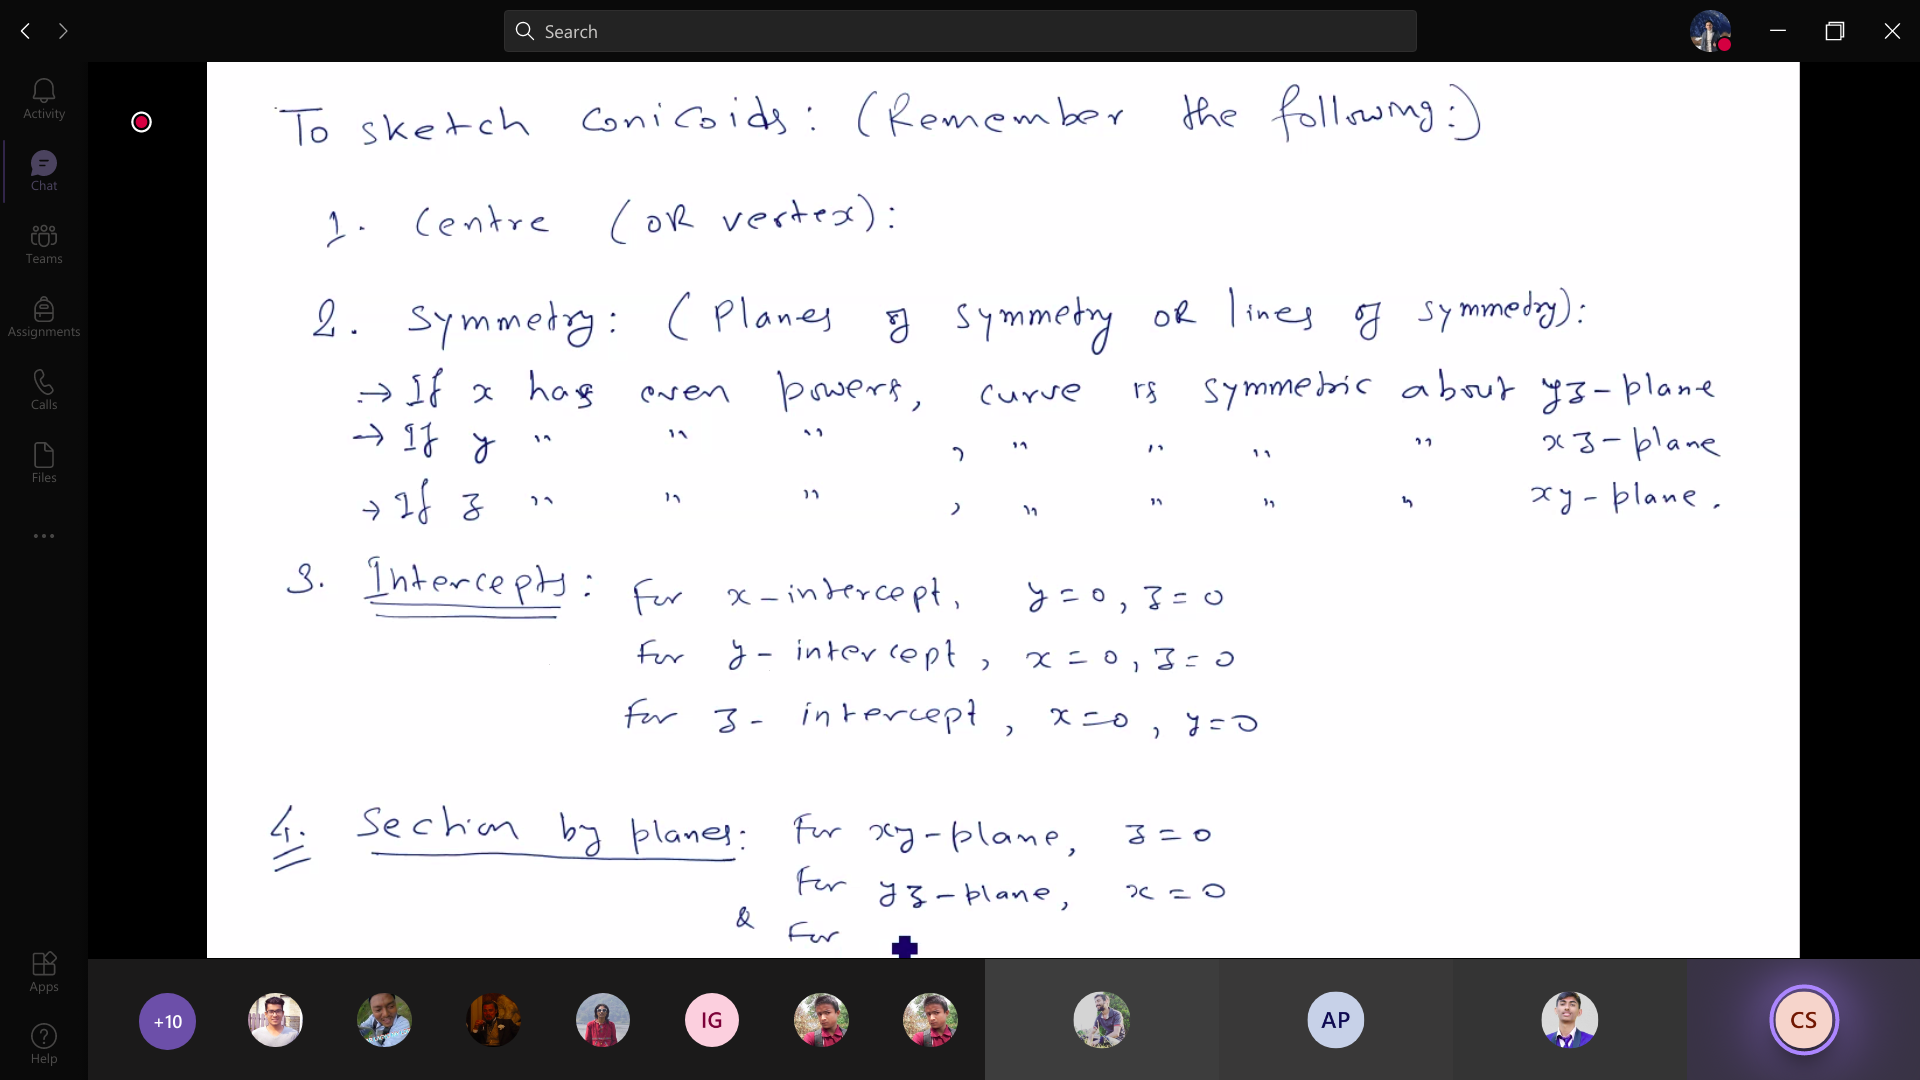 Search
Activity
Chat
Teams
Assignments
Calls
Files
Apps
Help
To sketch conicoids: (Remember the following:)
1. Centre (OR vertex):
2. Symmetry: (Planes of symmetry OR lines of symmetry):
→ If x has even powers, curve is symmetric about yz-plane
→ If y " " " , " " " " xz-plane
→ If z " " " , " " " " xy-plane.
3. Intercepts: For x-intercept, y=0, z=0
For y-intercept, x=0, z=0
For z-intercept, x=0, y=0
4. Section by planes: For xy-plane, z=0
For yz-plane, x=0
& For
+10
IG
AP
CS